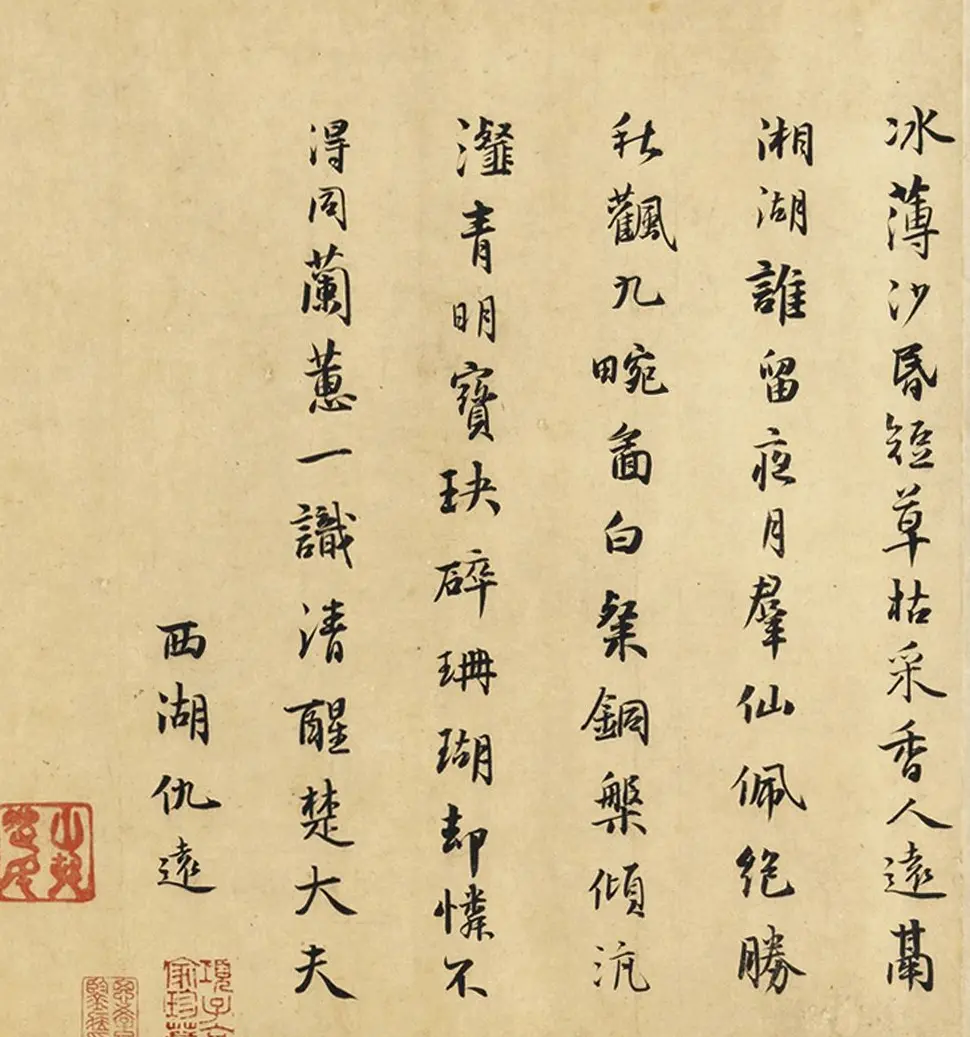 冰薄沙昏短草枯采香人遠鬲
湘湖誰留夜月羣仙佩絶勝
秋飌九畹啚白粲銅槃傾沆
瀣青明寶玦碎珊瑚却憐不
得同蘭蕙一識清醒楚大夫
西湖仇遠